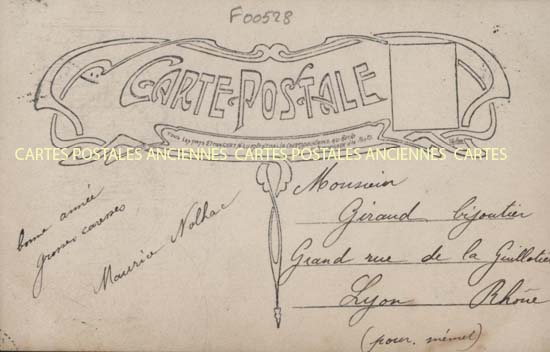 F00528
CARTE POSTALE
CARTES POSTALES ANCIENNES CARTES POSTALES ANCIENNES CARTES
bonne année
grosses caresses
Maurice Nolhac
Monsieur
Giraud bijoutier
Grand rue de la Guillotière
Lyon Rhône
(pour mémé)